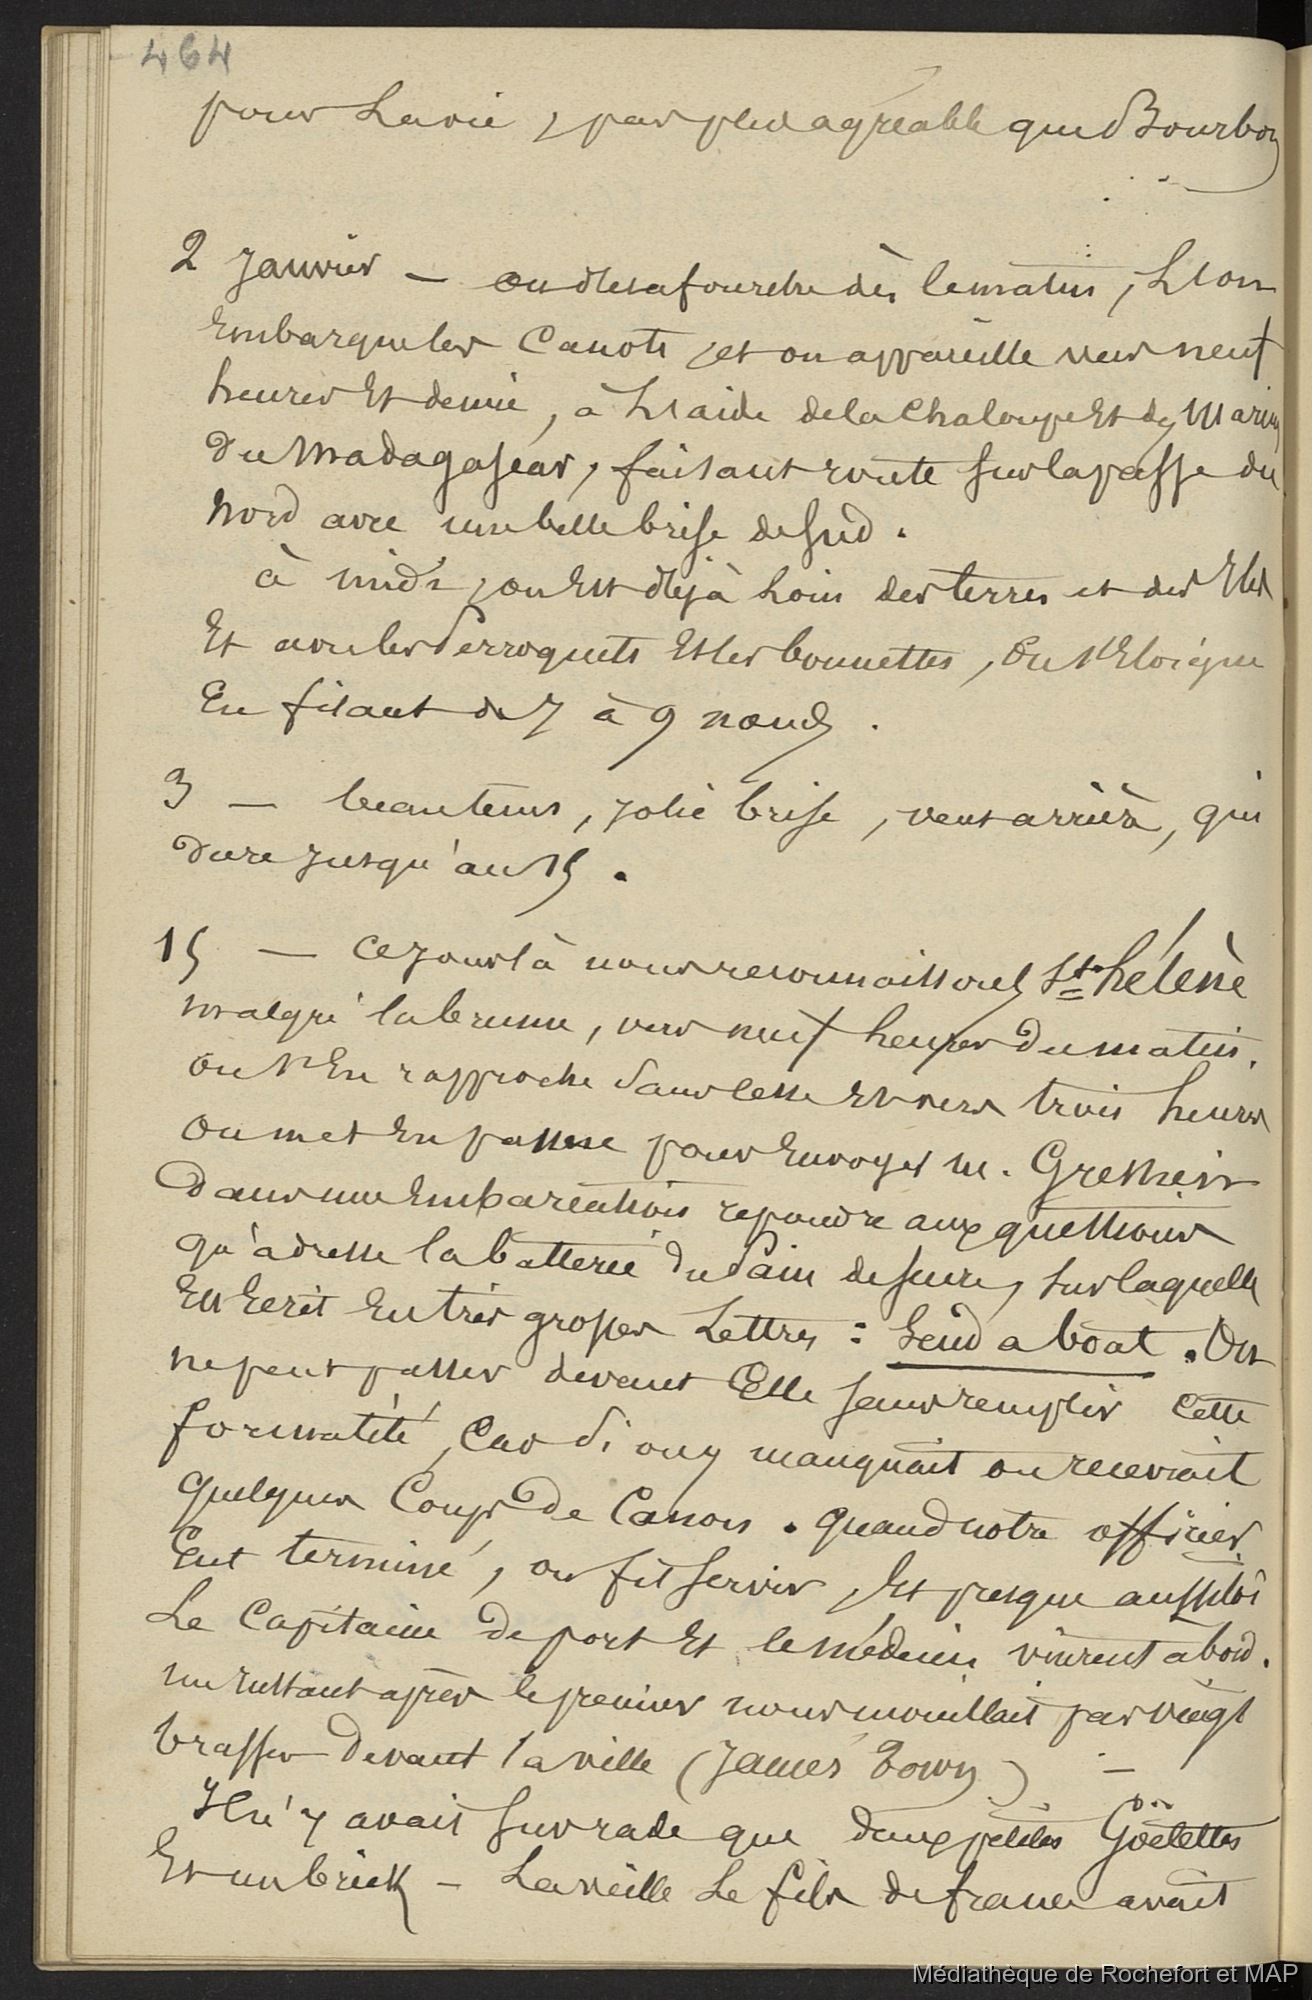 464
pour la vie, pas plus agréable que Bourbon
2 Janvier — on désafourche dès le matin, l'on
embarque les canots, et on appareille vers neuf
heures et demie, à l'aide de la chaloupe et des marins
du Madagascar, faisant route sur la passe du
nord avec une belle brise de sud.
à midi, on est déjà loin des terres et des Iles
et avec les Perroquets et les bonnettes, on s'éloigne
en filant de 7 à 9 nœuds.
3 — beau tems, jolie brise, vent arrière, qui
dure jusqu'au 15.
15 — Ce jour là nous reconnaissons Ste hélène
malgré la brume, vers neuf heures du matin.
on s'en rapproche sans cesse et vers trois heures
on met en panne pour envoyer m.
dans une embarcation repondre aux questions
qu'adresse la batterie du Pain de sucre, sur laquelle
est écrit en très grosses lettres : Send a boat. On
ne peut passer devant elle sans remplir cette
formalité, car si on y manquait on recevrait
quelques coups de canon. quand notre officier
eut terminé, on fit servir, et presque aussitôt
le capitaine de port et le médecin vinrent à bord.
un instant après le premier nous mouillait par vingt
brasses devant la ville (James Town) —
Il n'y avait sur rade que deux petites Goëlettes
et un brick — La veille le fils de france avait
Médiathèque de Rochefort et MAP